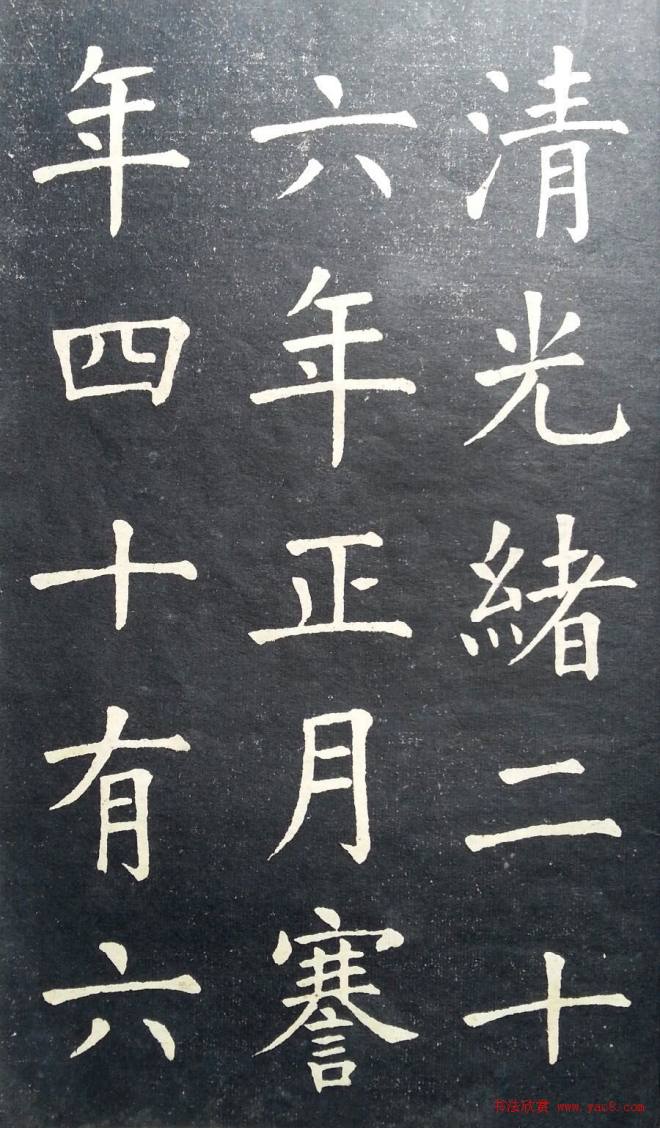 清光緒二十
六年正月謇
年四十有六
书法欣赏 www.yac8.com